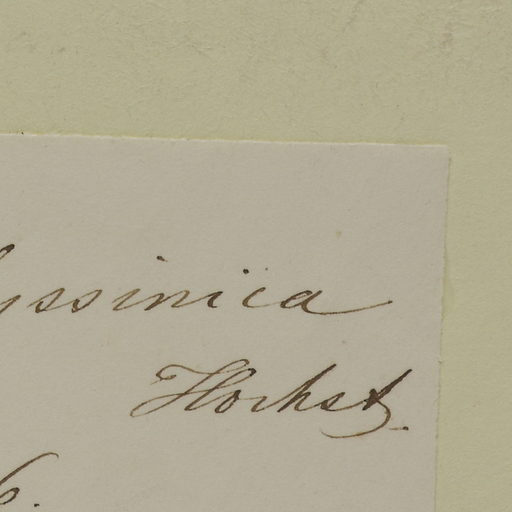 yssinica
Hochst.
6.